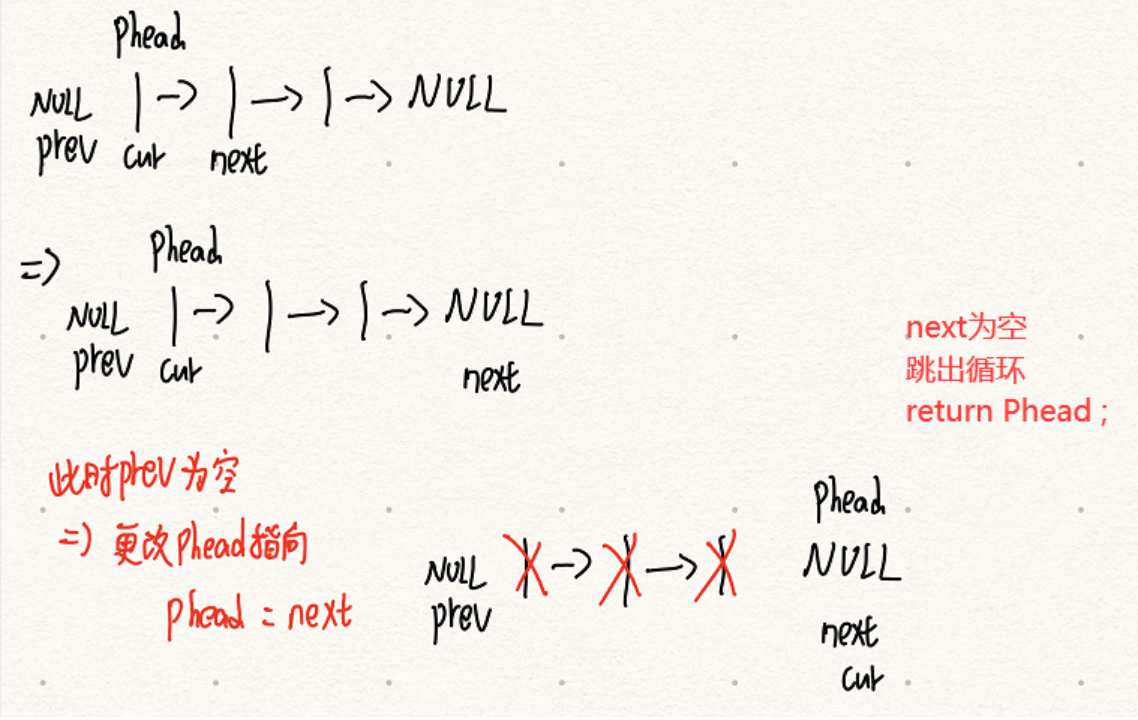 Phead
| -> | -> | -> NULL
NULL
prev cur next
=>
Phead
| -> | -> | -> NULL
NULL
prev cur next
next为空
跳出循环
return Phead ;
此时prev为空
=> 更改phead指向
phead = next
Phead
NULL
NULL
prev
next
cur